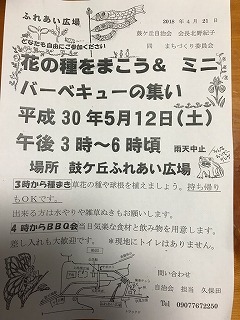 ふれあい広場
どなたも自由にご参加ください
2018年4月21日
鼓ケ丘自治会 会長北野紀子
同 まちづくり委員会
花の種をまこう& ミニ
バーベキューの集い
平成30年5月12日(土)
午後3時〜6時頃 雨天中止
場所 鼓ケ丘ふれあい広場
3時から種まき 草花の種や球根を植えましょう。持ち帰り
もOKです。
出来る方は水やりや雑草ぬきもお願いします。
4時からBBQ会 当日気楽な食材と飲み物を用意します。
差し入れも大歓迎です。 *現地にトイレはありません。
問い合わせ
自治会 担当 久保田
Tel 09077672250